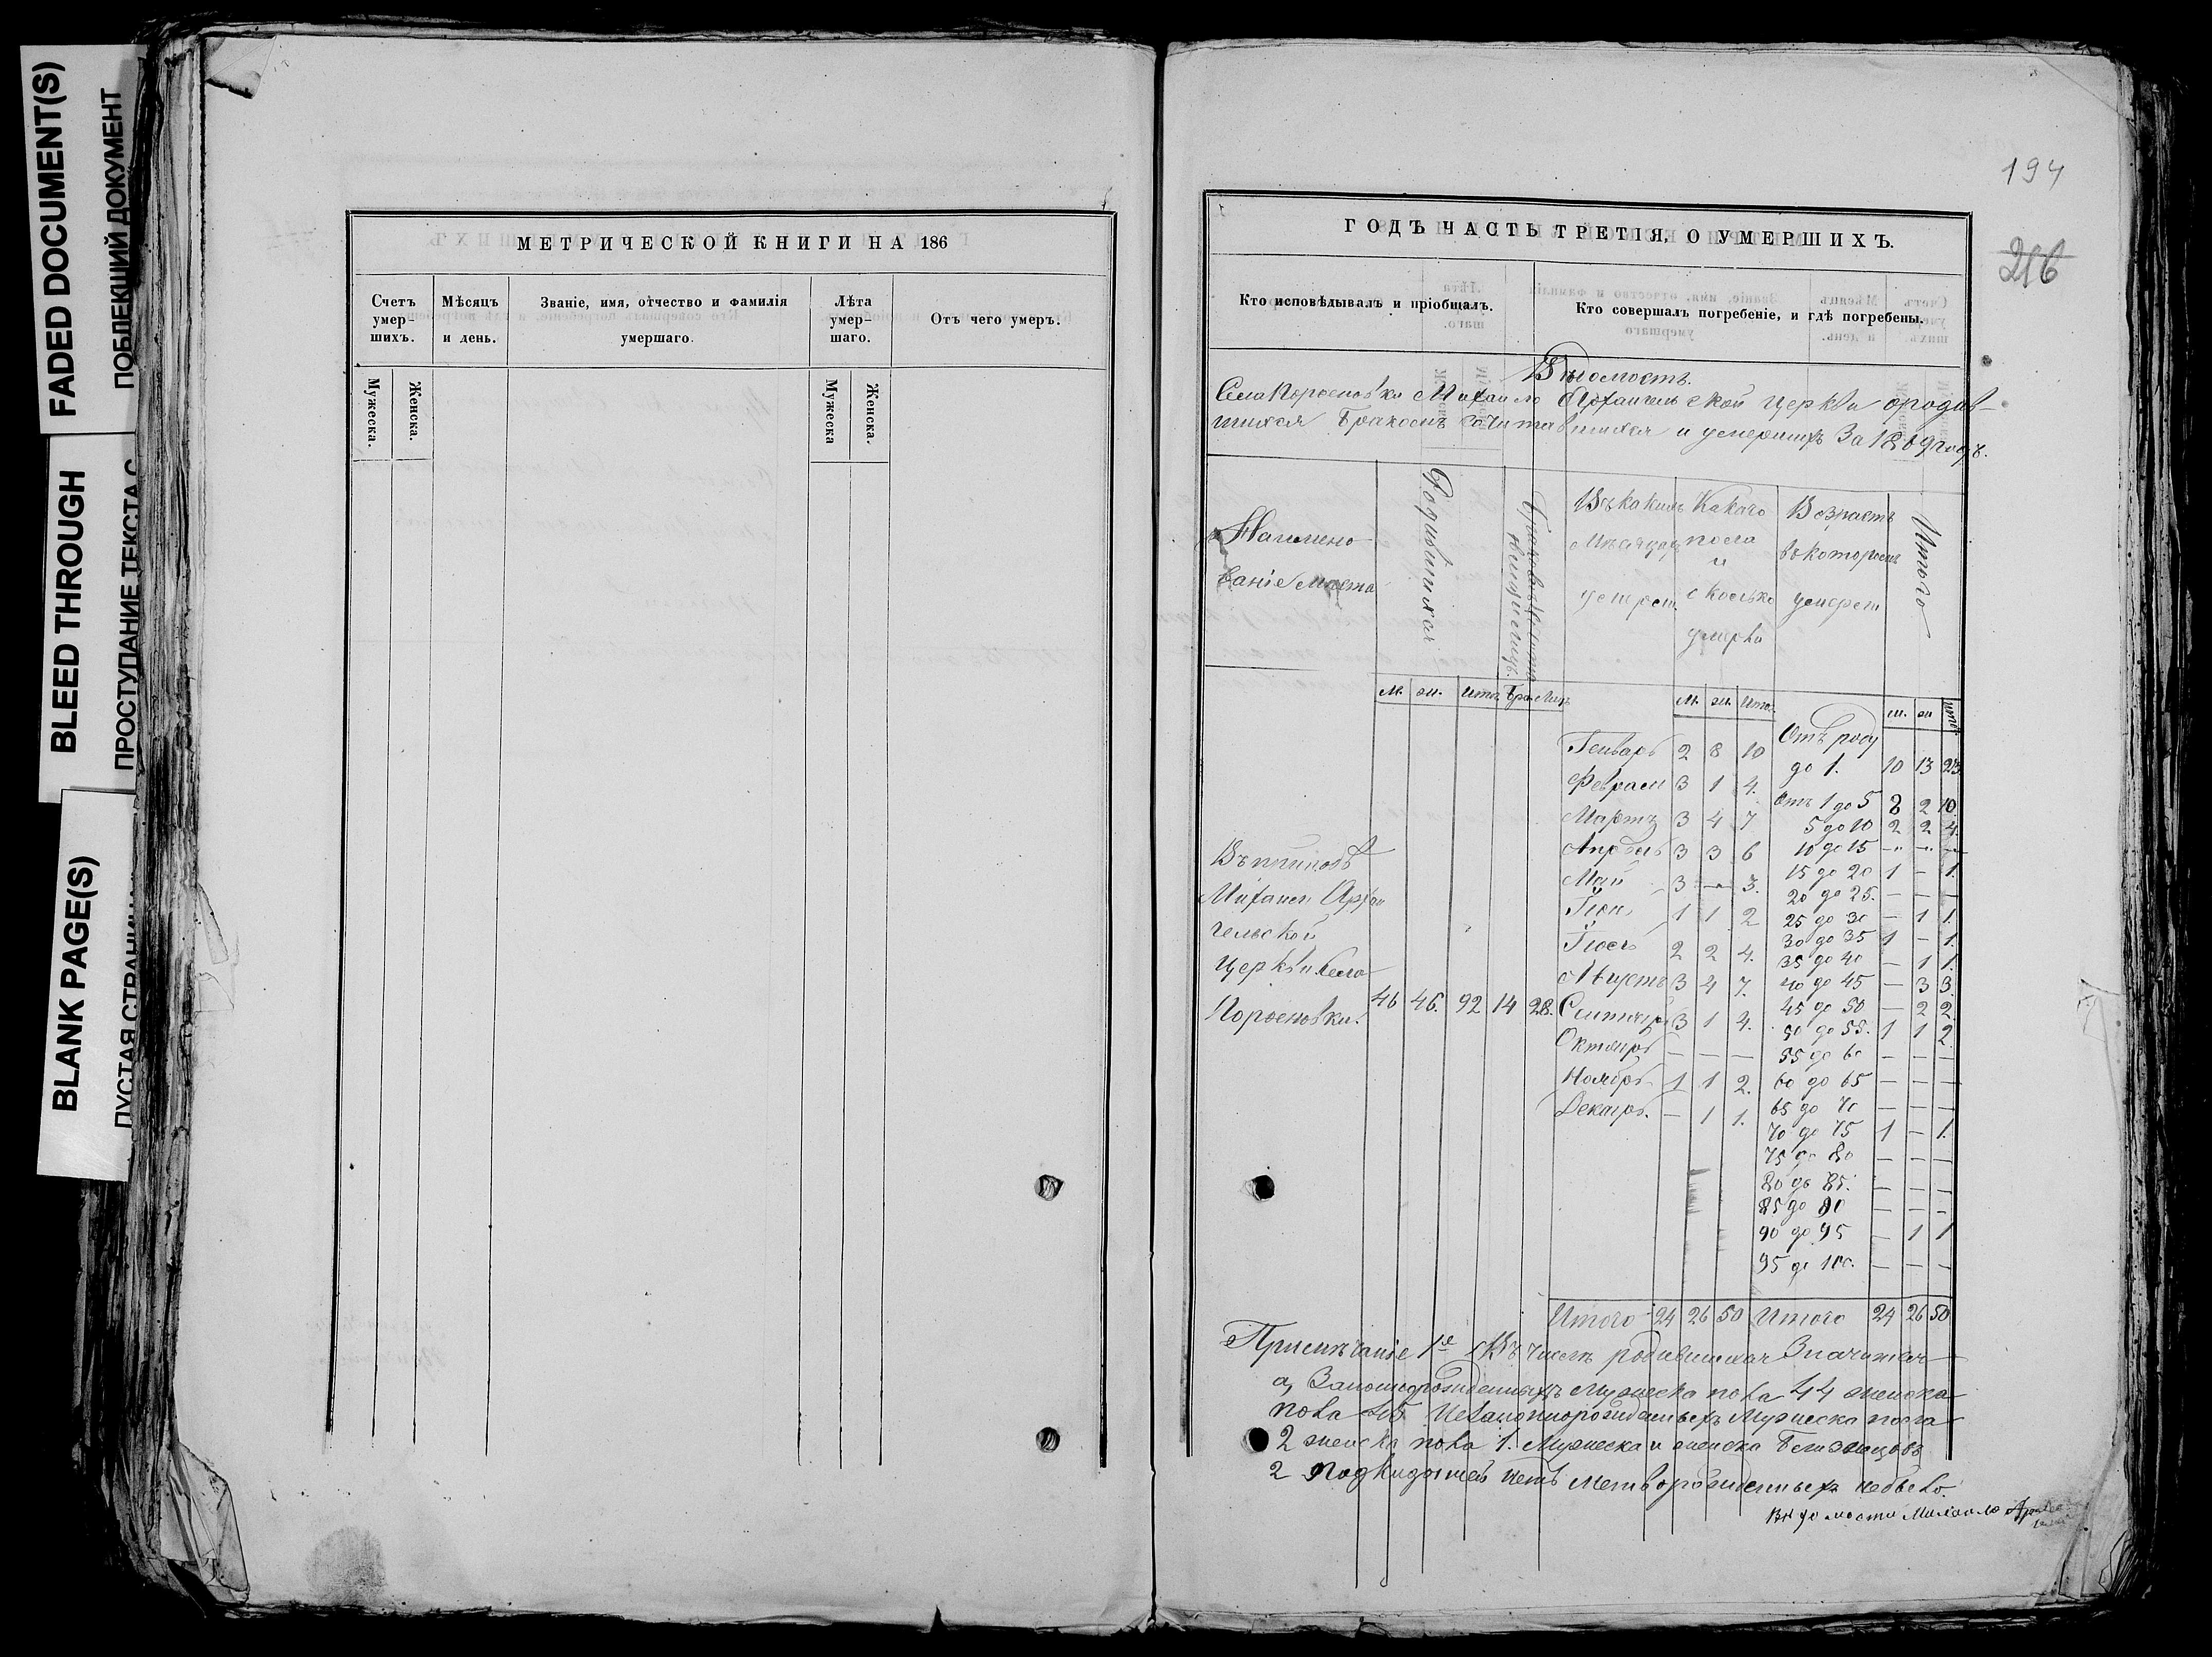 FADED DOCUMENT(S)
BLEED THROUGH
ПРОСТУПАНИЕ ТЕКСТА С
BLANK PAGE(S)
МЕТРИЧЕСКОЙ КНИГИ НА 186
Счетъ умер-шихъ.
Мѣсяцъ и день.
Званіе, имя, отчество и фамилія умершаго.
Лѣта умер-шаго.
Отъ чего умеръ.
Мужеска.
Женска.
Мужеска
Женска.
194
216
ГОДЪ ЧАСТЬ ТРЕТІЯ, О УМЕРШИХЪ.
Кто исповѣдывалъ и пріобщалъ.
Кто совершалъ погребеніе, и гдѣ погребены.
Вѣдомость.
Села Михаило Архангельской церкви ородив-
шихся Бракомъ сочитавшихся и умершихъ За 1869 годъ.
Наимено-
ваніе места
Родившихся
Въ какихъ
месяцахъ
Какаго
пола
и
сколько
умерло
Возрастъ
въ которомъ
Итого
М. ж. Итог. Бра. Лиц.
М. ж. Итог.
м. ж Итог
Генварь 2 8 10
От роду
до 1. 10 13 23
Февраль 3 1 4.
Отъ 1 до 5 8 2 10.
Мартъ 3 4 7
5 до 10 2 2 4.
Апрель 3 3 6
10 до 15 - - -
Май 3 - 3.
15 до 20 1 - 1.
20 до 25. - - -
Іюнь 1 1 2
25 до 30 - 1 1.
Іюль 2 2 4.
30 до 35 1 - 1.
35 до 40 - 1 1.
Августъ 3 4 7.
40 до 45 - 3 3.
Михаил Архан
гельской
Церкви Села
46 46. 92 14 28.
Сентябрь 3 1 4.
45 до 50 - 2 2.
50 до 55. 1 1 2.
Октябрь - - -
55 до 60 - - -
Ноябрь 1 1 2.
60 до 65 - - -
Декабрь. - 1 1.
65 до 70 - - -
70 до 75 1 - 1.
75 до 80 - - -
80 до 85. - - -
85 до 90 - - -
90 до 95 - 1 1
95 до 100. - - -
Итого 24 26 50 Итого 24 26 50
Примѣчаніе 1е Въ числѣ родившихся Значится
а, Законнорожденныхъ Мужеска пола 44 женска
пола 45 Незаконнорожденныхъ Мужеска пола
2 женска пола 1. Мужеска и женска Близнецовъ
2 Подкидышей нетъ Мертворожденныхъ небыло.
Вѣдомости Михаило